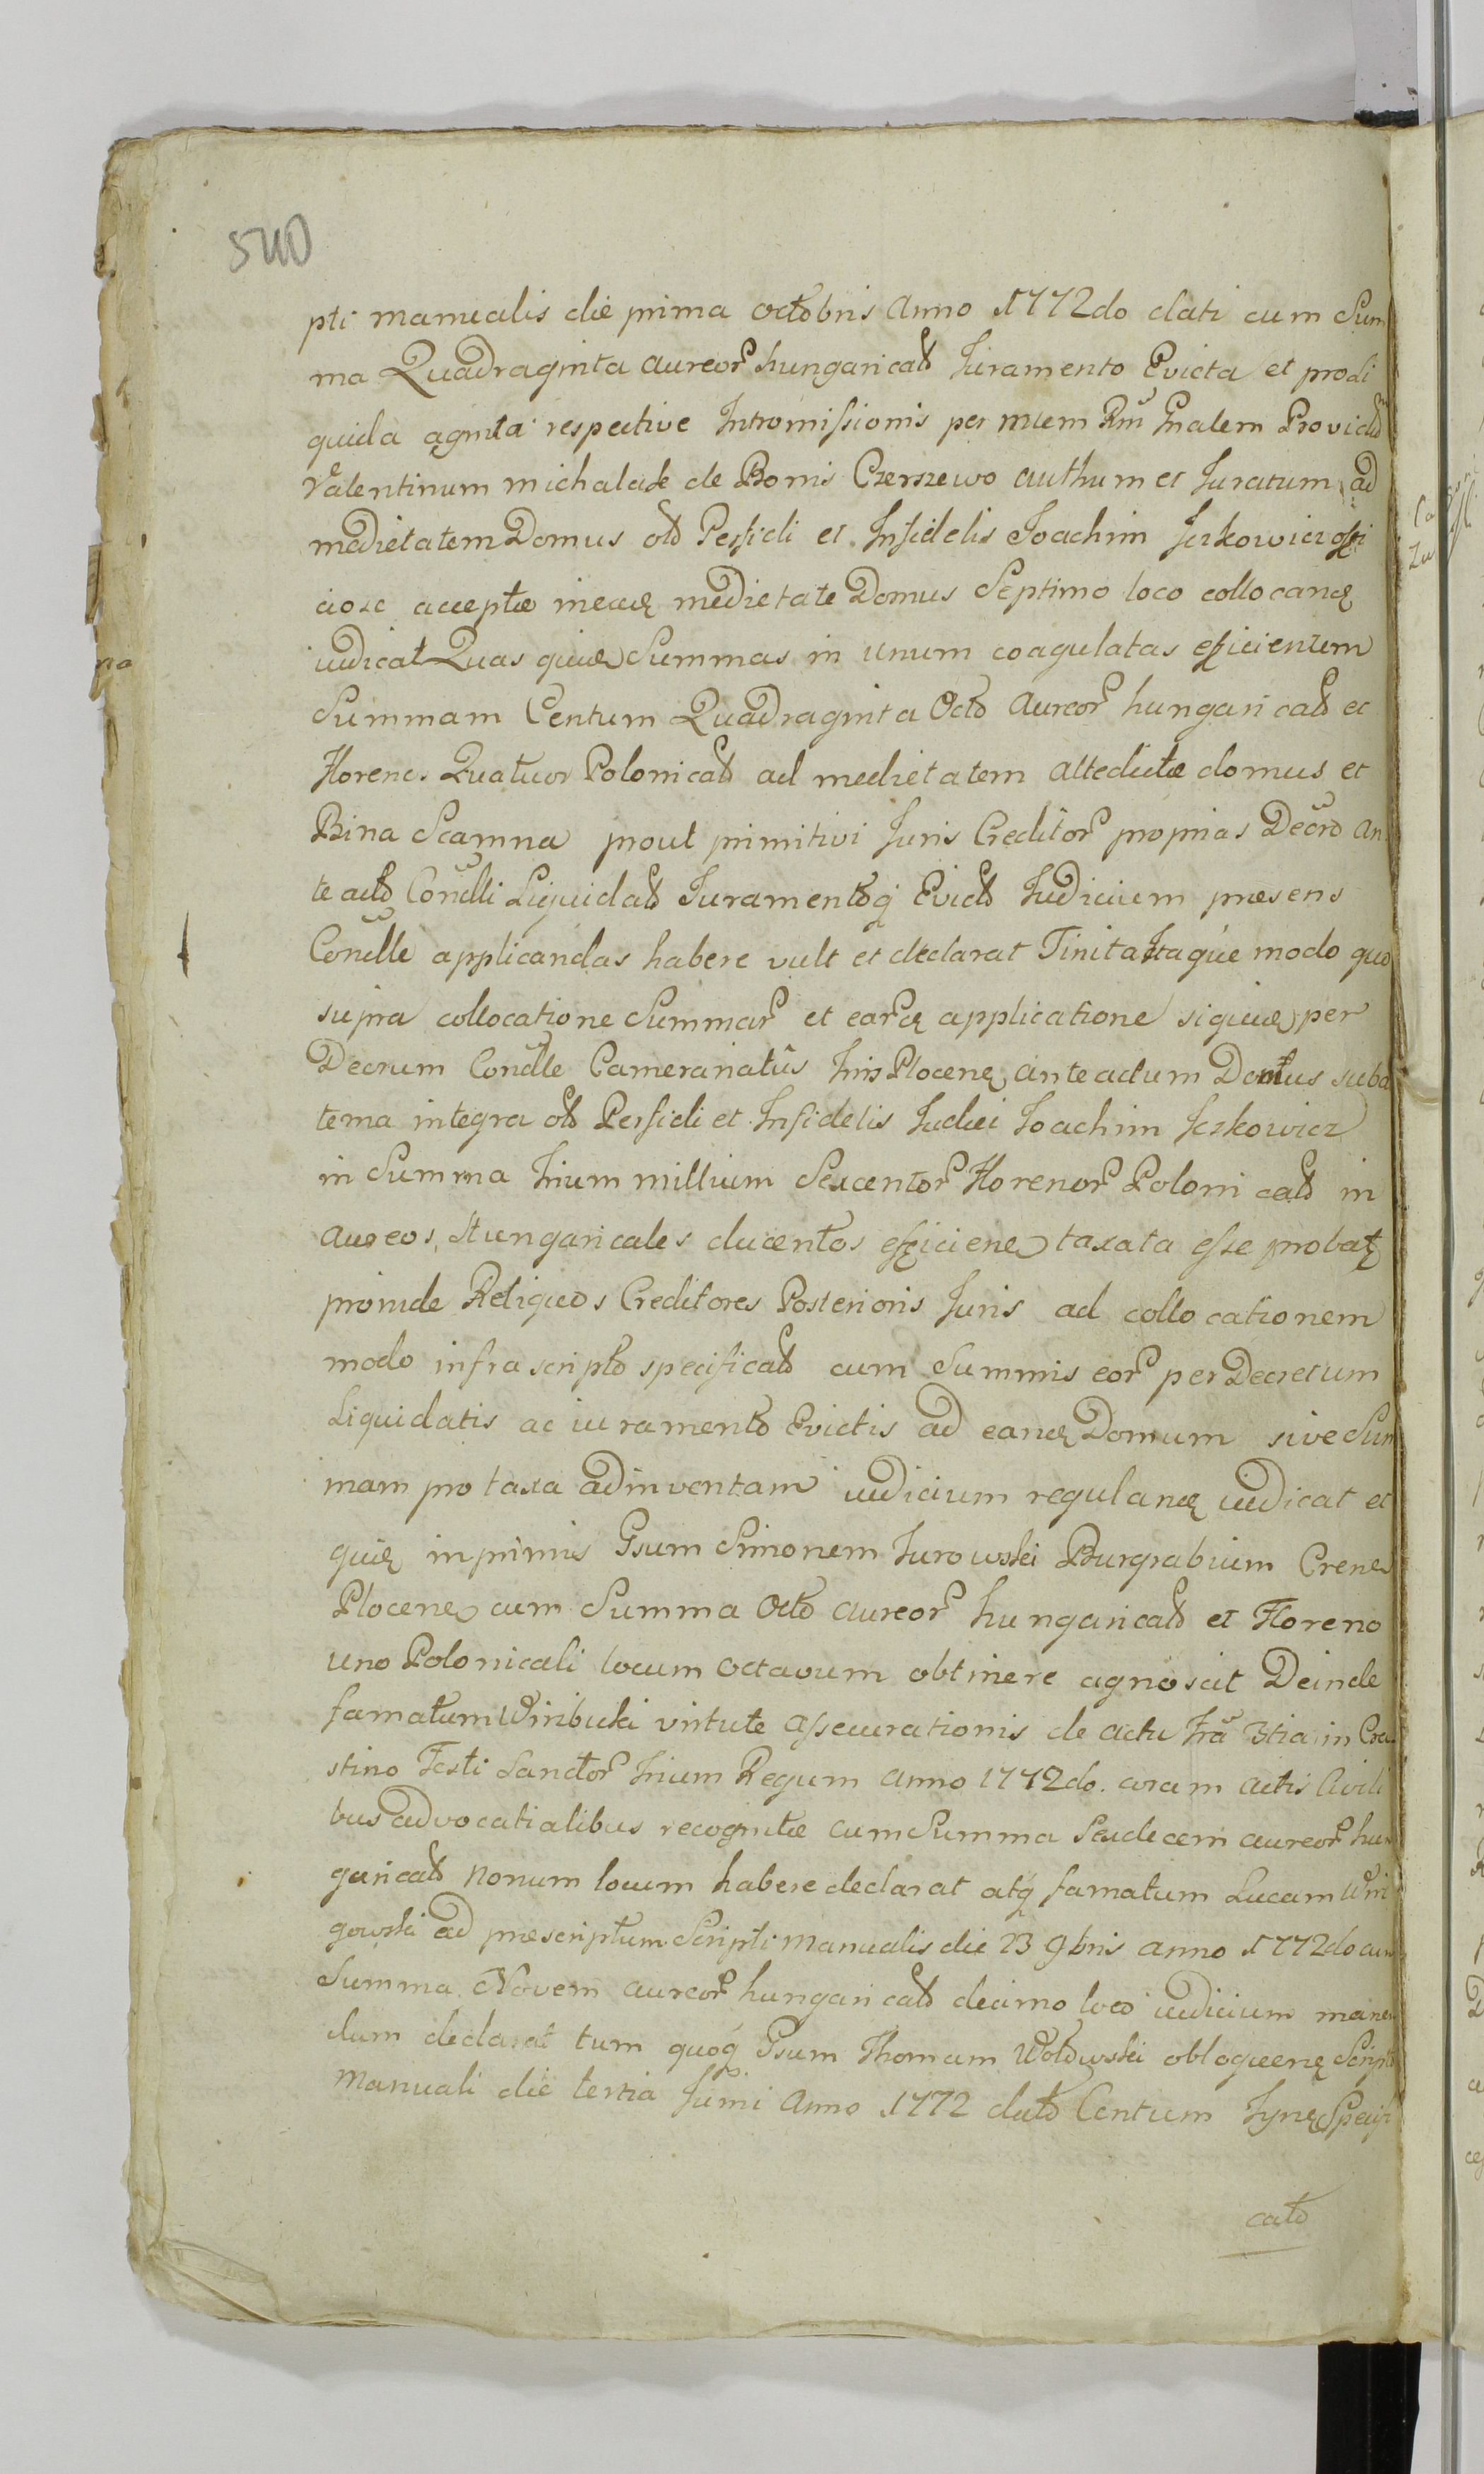 540
pti manualis die prima Octobris Anno 1772do dati cum Sum
ma Quadraginta aureor hungaricaliũ Juramento Evicta et pro li
quida agnita respective Intromissionis per Mlem Rni Gnalem Providũ
Valentinum Michalak de Bonis Czerszewo authum et Juratum ad
medietatem Domus olim Perfidi et Infidelis Joachim Jerkowicz offi
ciose acceptæ ineaq medietate Domus Septimo loco collocanq
iudicat Quas quiq Summas in unum coagulatas efficientem
Summam Centum Quadraginta Octo Aureor hungaricaliũ et
Floreno Quatuor Polonicaliũ ad medietatem attedictæ domus et
Bina Scamna prout primitivi Juris Creditor proprias Decro an
te acto Condli Liquidato Juramentoq Evicto Judicium præsens
Condlle applicandas habere vult et declarat Finita Itaque modo quo
supra collocatione Summar et earq applicatione siquiq per
Decrum Condlle Cameranatûs Trris Plocenę anteactum Domus suba
terna integra olim Perfidi et Infidelis Judæi Joachim Jerkowicz
in Summa Trium millium Sexcentor Florenor Polonicaliũ in
aureos Hungaricales ducentos efficiene taxata esse probatę
proinde Reliquos Creditores Posterioris Juris ad collocationem
modo infrascripto specificato cum Summis eor per Decretum
Liquidatis ac iuramento Evictis ad eandę Domum sive Sum
mam pro taxa adinventam iudicium regulandę iudicat et
quię inprimis Gsum Simonem Turowski Burgrabium Crene
Plocene cum Summa Octo aureor hungaricaliũ et Floreno
uno Polonicali locum octavum obtinere agnoscit Deinde
famatum Winbicki virtute assecurationis de actu Fra 3tia in Cra
stino Festi Sanctor Trium Regum Anno 1772do coram actis Civili
bus advocatialibus recognitæ cum Summa Sexdecem aureor hun
garicaliũ Nonum locum habere declarat atq famatum Lucam
gowski ad præscriptum Scripti Manualis die 23 9bris anno 1772do cum
Summa Novem aureor hungaricaliũ decimo loco iudicium manen
dum declarat tum quoq Gsum Thomam Wotowski obloquenę Scripto
Manuali die tertia Junii Anno 1772 dato Centum Tynę Specifi
cato